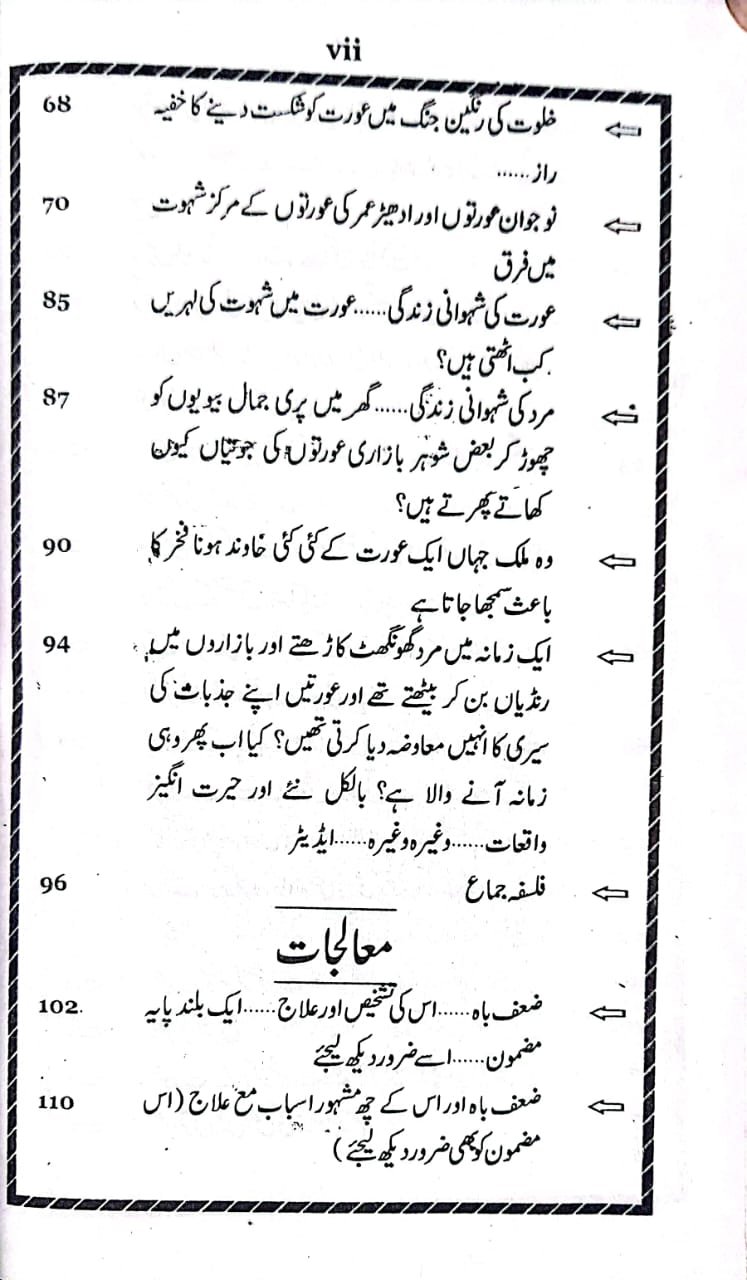 vii
خلوت کی رنگین جنگ میں عورت کو شکست دینے کا خفیہ 68
راز......
نوجوان عورتوں اور ادھیڑ عمر کی عورتوں کے مرکز شہوت 70
میں فرق
عورت کی شہوانی زندگی......عورت میں شہوت کی لہریں 85
کب اٹھتی ہیں؟
مرد کی شہوانی زندگی......گھر میں پری جمال بیویوں کو 87
چھوڑ کر بعض شوہر بازاری عورتوں کی جوتیاں کیون
کھاتے پھرتے ہیں؟
وہ ملک جہاں ایک عورت کے کئی کئی خاوند ہونا فخر کا 90
باعث سمجھا جاتا ہے
ایک زمانہ میں مرد گھونگھٹ کاڑھتے اور بازاروں میں 94
رنڈیاں بن کر بیٹھتے تھے اور عورتیں اپنے جذبات کی
سیری کا انہیں معاوضہ دیا کرتی تھیں؟ کیا اب پھر وہی
زمانہ آنے والا ہے؟ بالکل نئے اور حیرت انگیز
واقعات......وغیرہ وغیرہ......ایڈیٹر
فلسفہ جماع 96
معالجات
ضعف باہ......اس کی تشخیص اور علاج......ایک بلند پایہ 102
مضمون......اسے ضرور دیکھ لیجئے
ضعف باہ اور اس کے چھ مشہور اسباب مع علاج (اس 110
مضمون کو بھی ضرور دیکھ لیجئے)